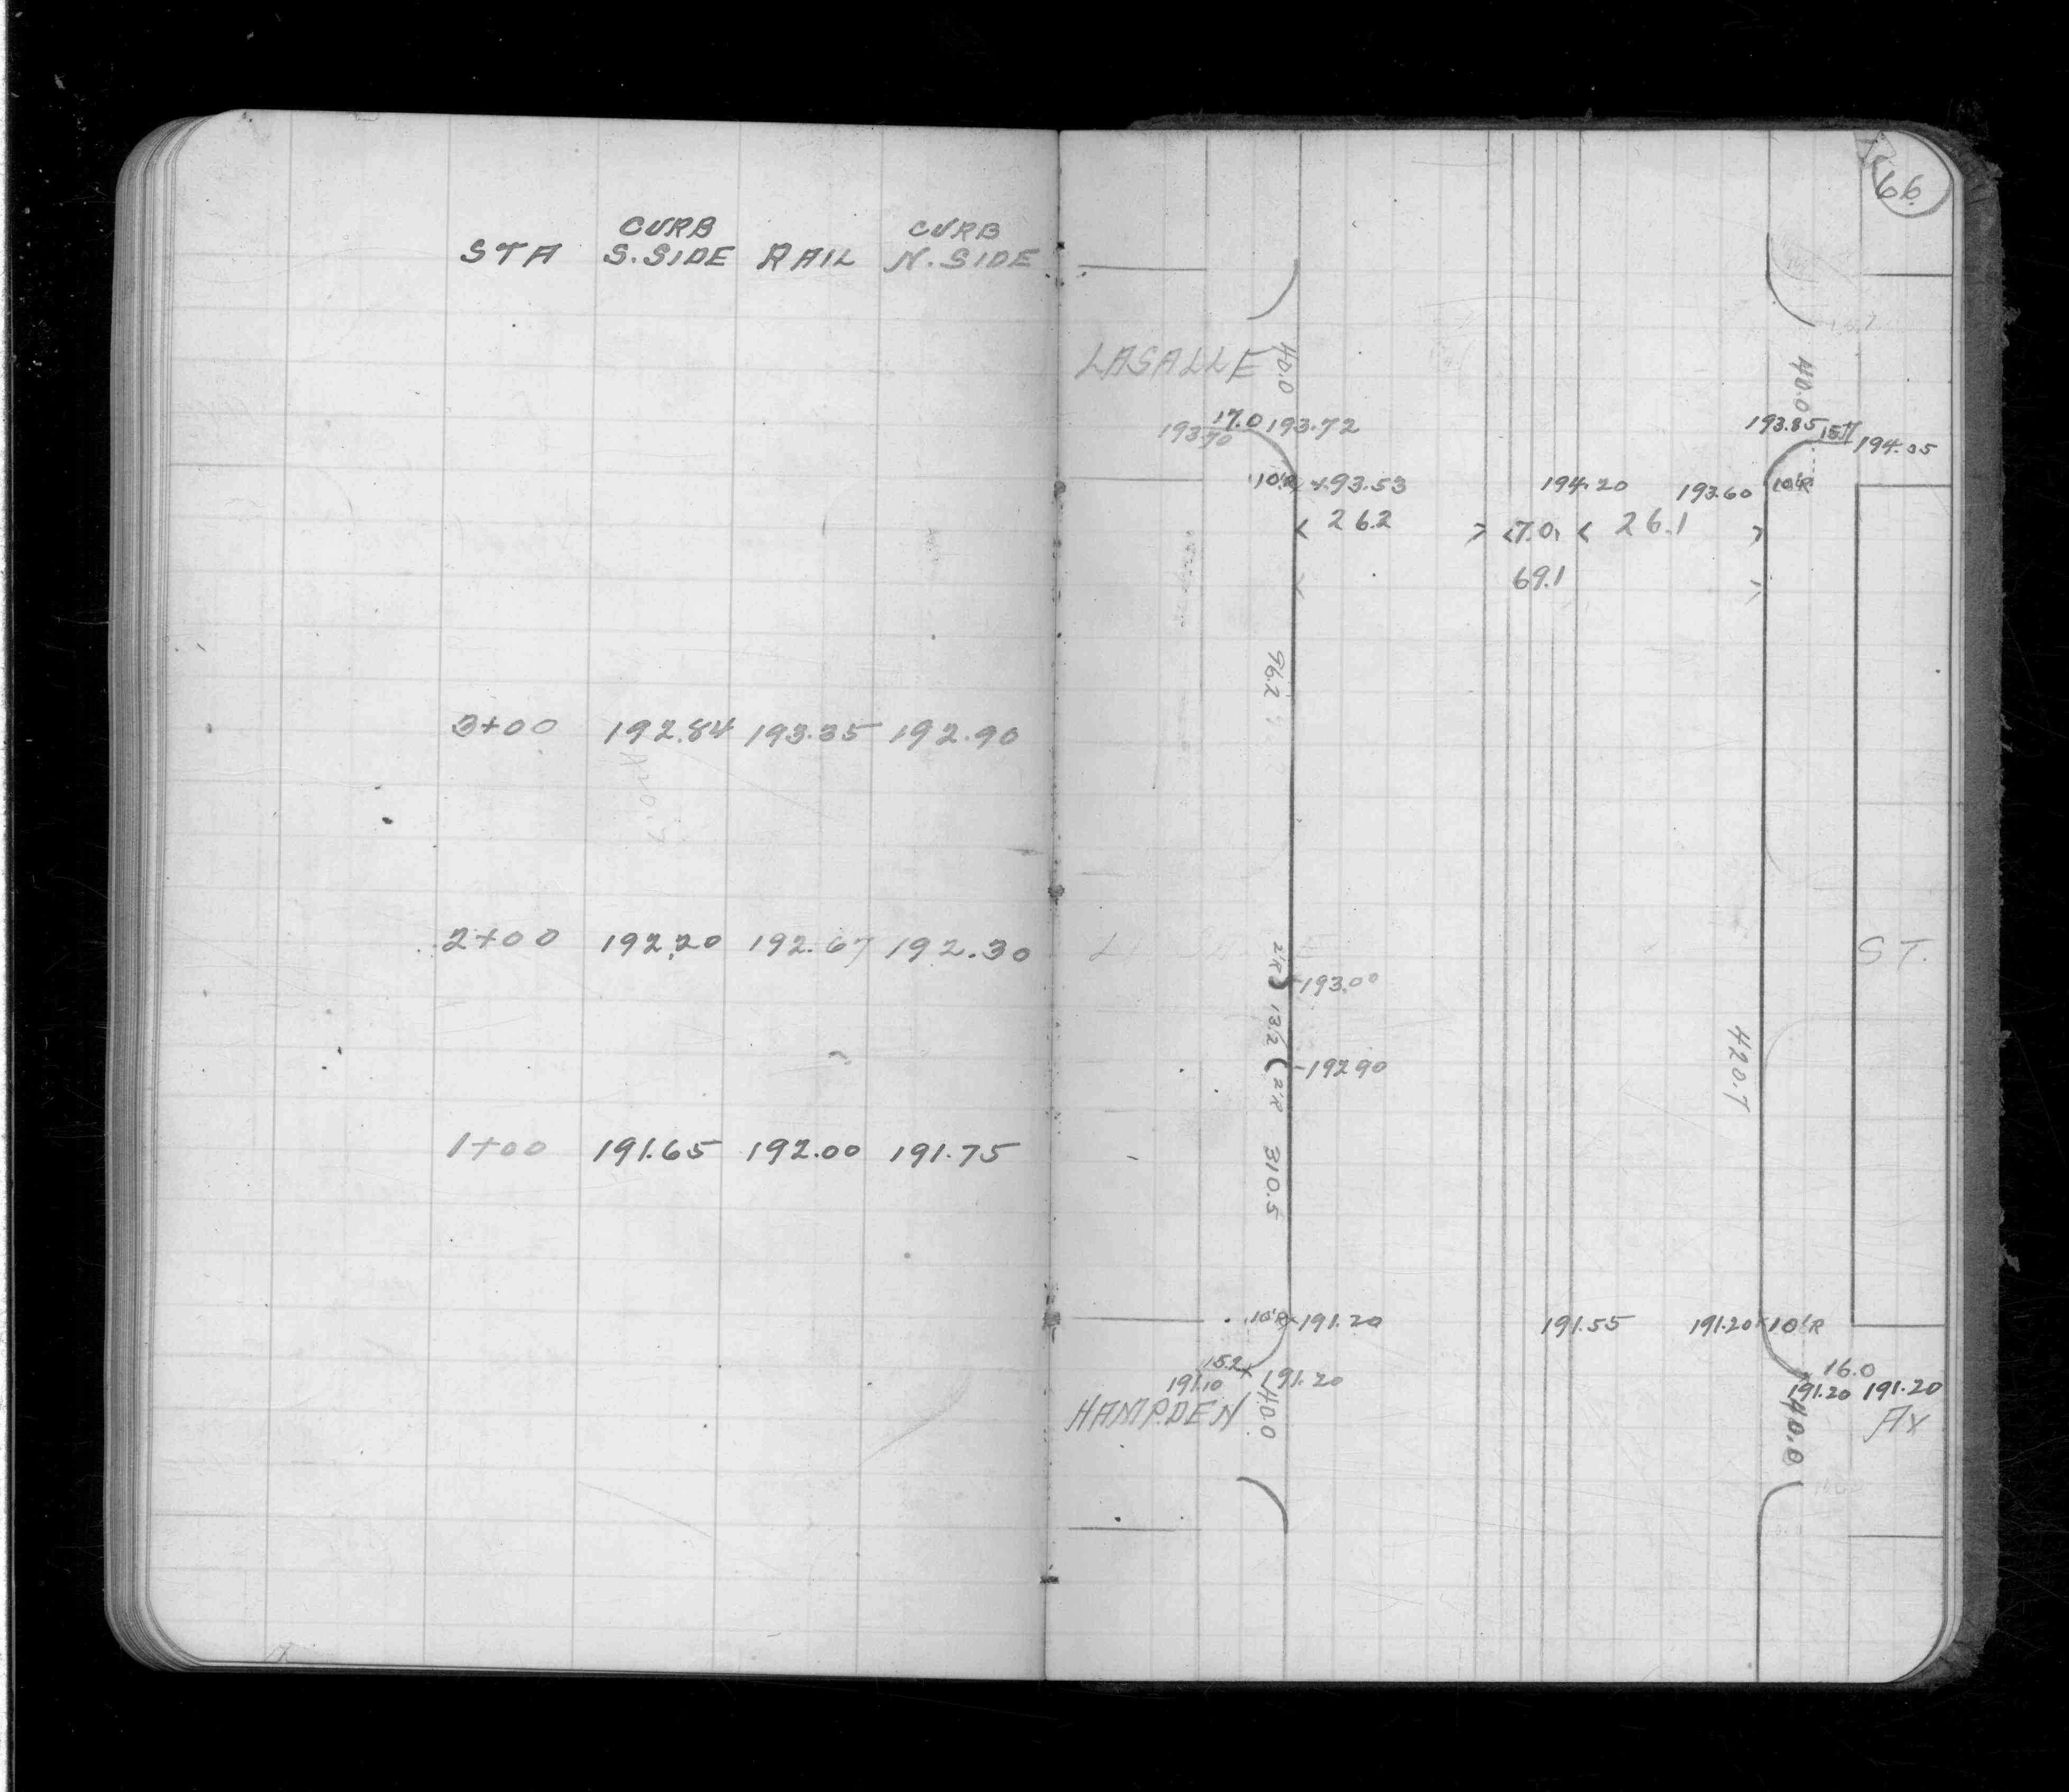 CURB CURB
STA S.SIDE RAIL N.SIDE
3+00 192.84 193.35 192.90
2+00 192.20 192.67 192.30
1+00 191.65 192.00 191.75
66
LASALLE 40.0 40.0
17.0 193.72 193.85
193.70 194.05
10'R 193.53 194.20 193.60 10'R
26.2 7.0 26.1
69.1
96.2
ST.
2'R 193.00
13.2
192.90
2'R
420.7
310.5
10'R 191.20 191.55 191.20 10'R
15.2 16.0
191.10 191.20 191.20 191.20
HAMPDEN 40.0 40.0 AV